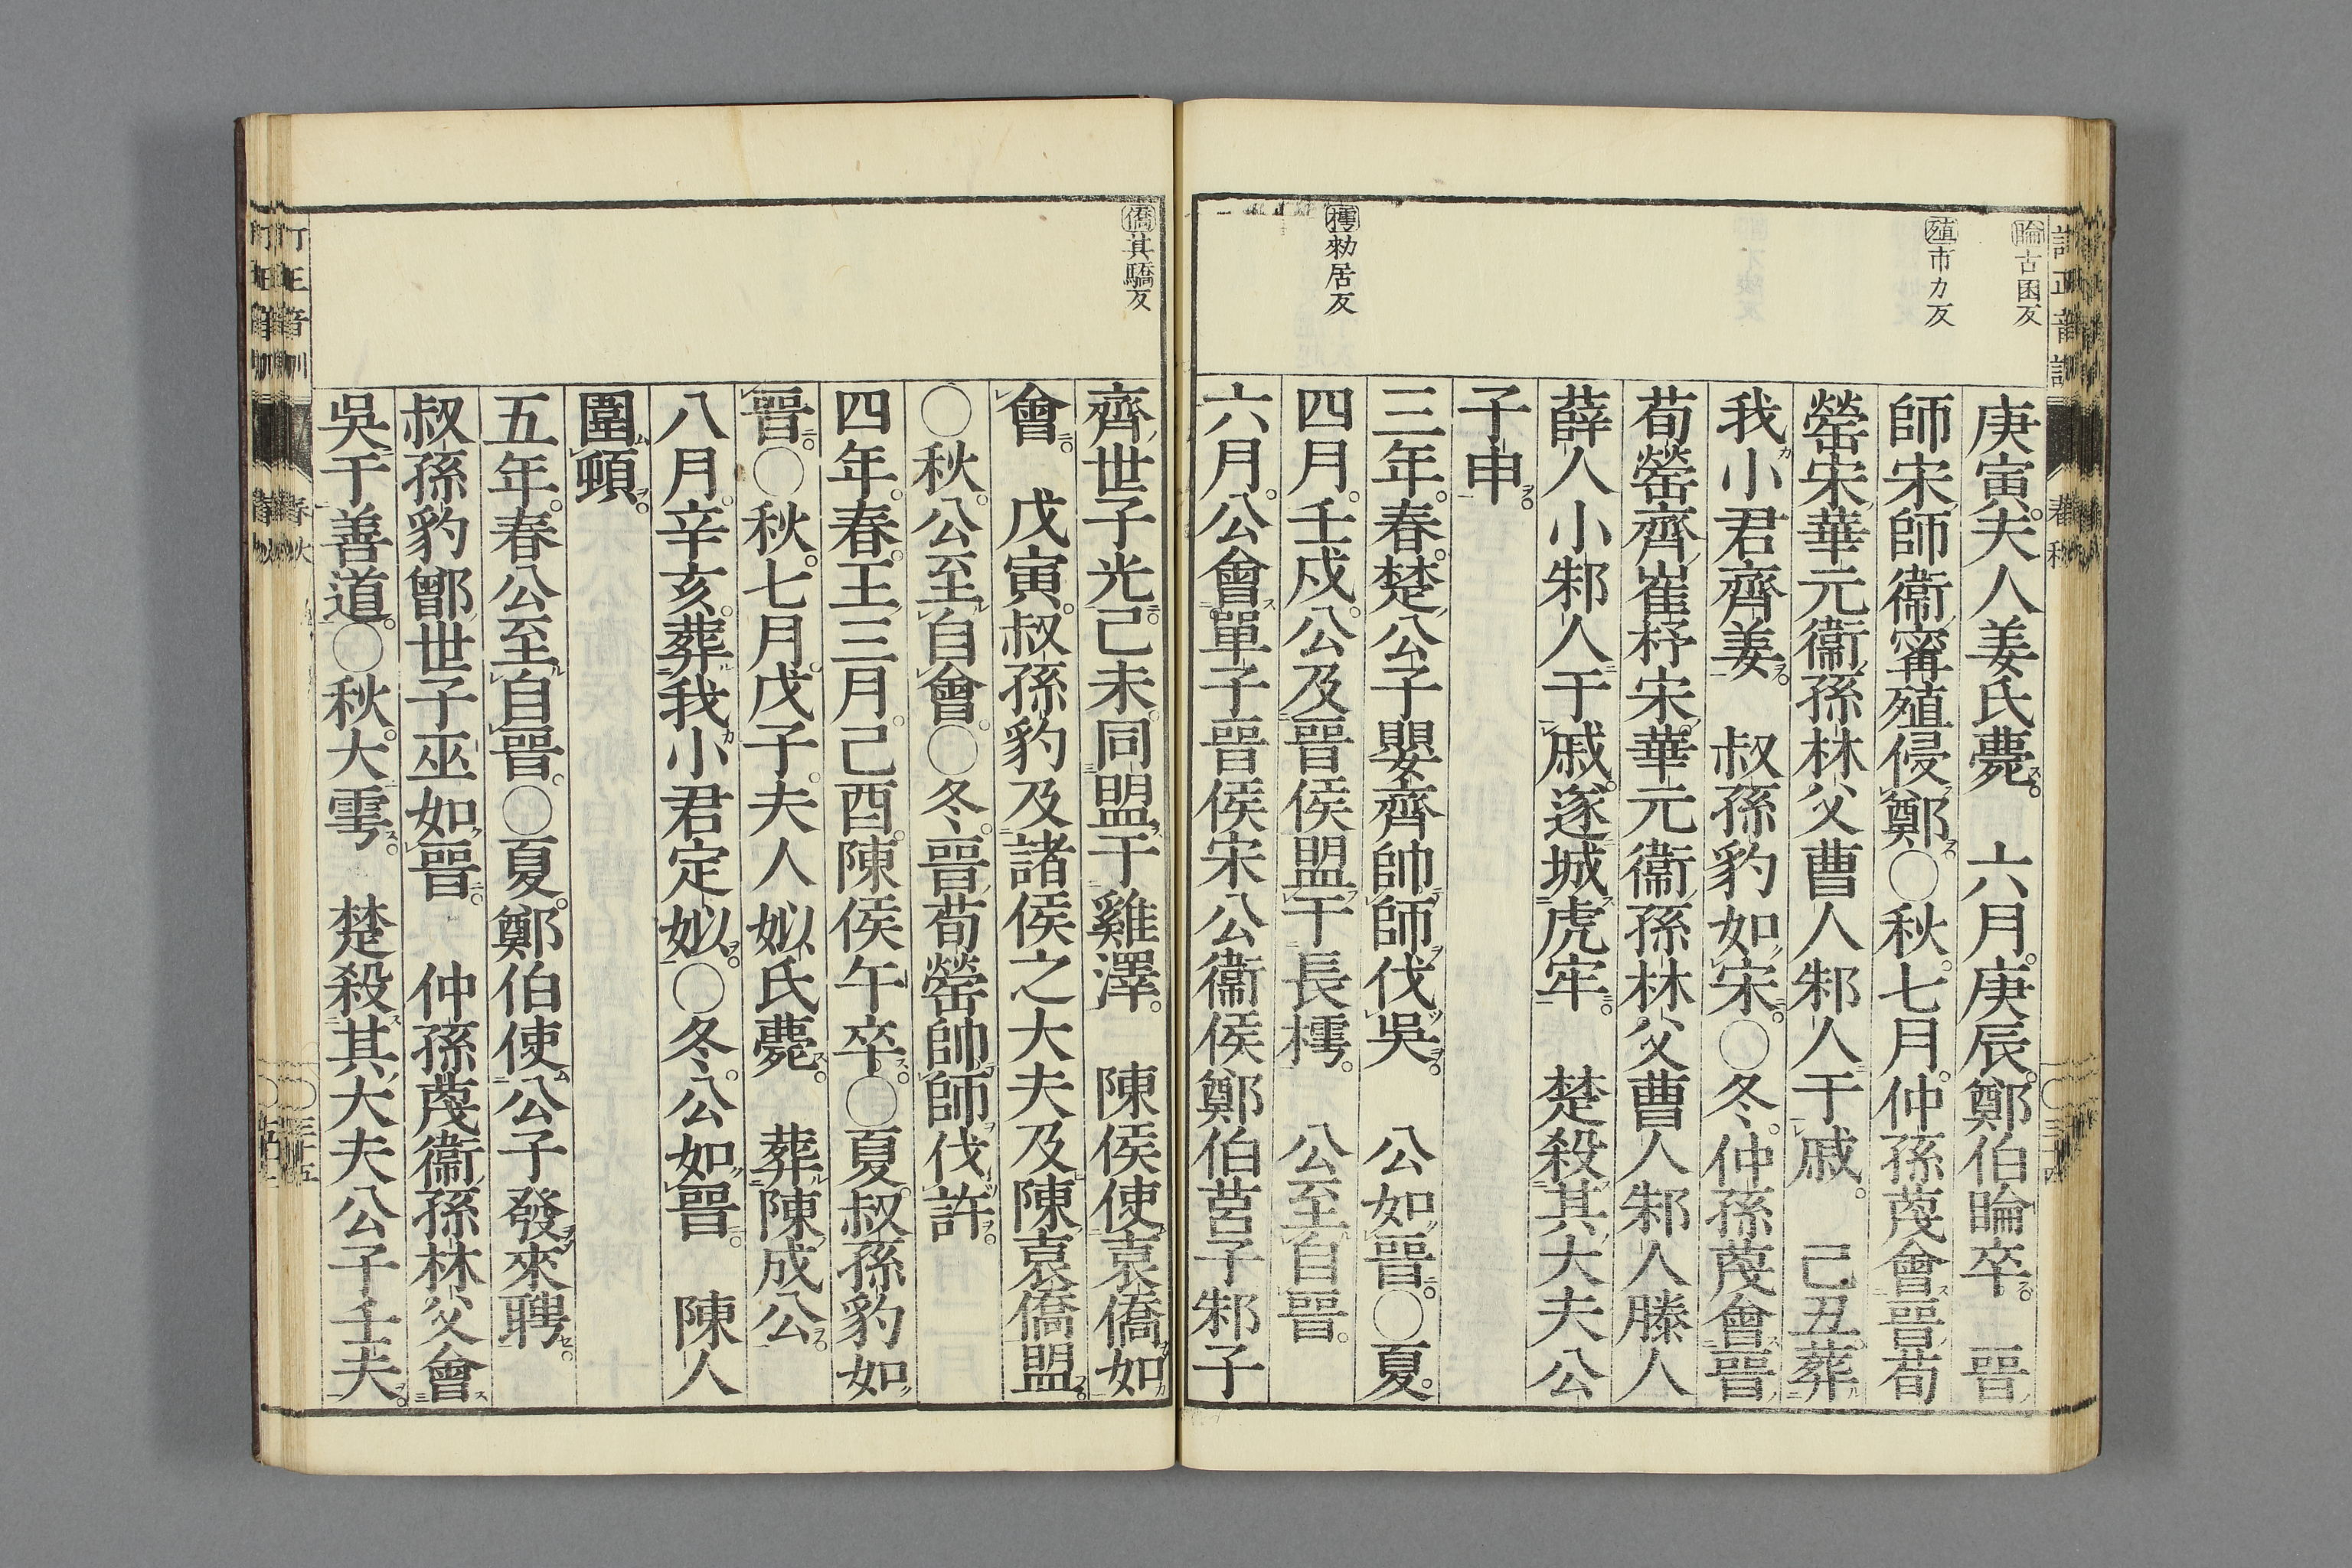 睔古困反
殖市力反
樗勑居反
庚寅。夫人姜氏薨。 六月。庚辰。鄭伯睔卒。 晉
師宋師衞甯殖侵鄭○秋。七月。仲孫蔑會晉荀
罃宋華元衞孫林父曹人邾人于戚。 己丑葬
我小君齊姜。 叔孫豹如宋。○冬。仲孫蔑會晉
荀罃齊崔杼宋華元衞孫林父曹人邾人滕人
薛人小邾人于戚。遂城虎牢。 楚殺其大夫公
子申。
三年。春。楚公子嬰齊帥師伐吳。 公如晉。○夏。
四月。壬戌。公及晉侯盟于長樗。 公至自晉。
六月。公會單子晉侯宋公衞侯鄭伯莒子邾子
僑其驕反
齊世子光。己未。同盟于雞澤。 陳侯使袁僑如
會。 戊寅。叔孫豹及諸侯之大夫及陳袁僑盟。
○秋。公至自會。○冬。晉荀罃帥師伐許。
四年。春。王三月。己酉。陳侯午卒。○夏。叔孫豹如
晉。○秋。七月。戊子。夫人姒氏薨。 葬陳成公。
八月。辛亥。葬我小君定姒。○冬。公如晉。 陳人
圍頓。
五年。春公至自晉。○夏。鄭伯使公子發來聘。
叔孫豹鄫世子巫如晉。 仲孫蔑衞孫林父會
吳于善道。○秋。大雩。 楚殺其大夫公子壬夫。